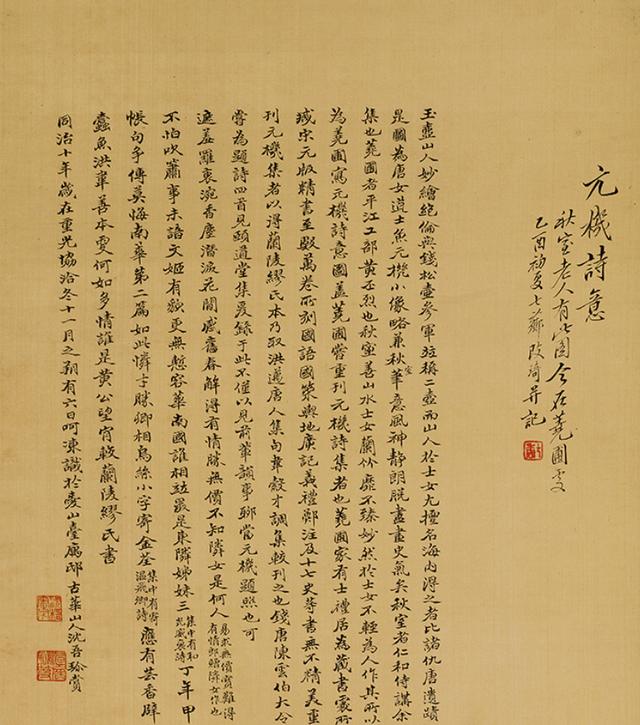 元機詩意
秋室老人有此圖今在蕘圃處
乙酉初夏七薌改琦并記
玉壺山人妙繪絕倫與錢松壺參軍竝稱二壺而山人於士女尤擅名海內得之者比諸仇唐遺蹟
是圖為唐女道士魚元機小像略兼秋室筆意風神靜朗脫盡畫史氣矣秋室者仁和侍講余
集也蕘圃者平江工部黃丕烈也秋室善山水士女蘭竹靡不臻妙然於士女不輕為人作其所以
為蕘圃寫元機詩意圖蓋蕘圃嘗重刊元機詩集者也蕘圃家有士禮居為藏書處所
臧宋元版精書至數萬卷所刻國語國策輿地廣記義禮鄭注及十七史等書無不精美重
刊元機集者以得蘭陵繆氏本乃取洪邁唐人集句韋縠才調集較刊之也錢唐陳雲伯大令
嘗為題詩四首見頤道堂集爰錄于此不僅以見前輩韻事聊當元機題照也可
遮羞羅褎浣香塵潛淚花間感舊春解得有情勝無價不知隣女是何人
易求無價寶難得
有情郎贈隣女作也
不怕吹簫事未諧文姬有歎更無慙容華南國誰相竝最是東隣姊妹三
集中有和
光威裒詩
丁年甲
帳句爭傳莫悔南華第二篇如此憐才勝卿相烏絲小字寄金荃
集中有寄
溫飛卿詩
應有芸香辟
蠹魚洪崋善本更何如多情誰是黃公望宵較蘭陵繆氏書
同治十年歲在重光協洽冬十一月之朔有六日呵凍識於
山臺廡邸古華山人沈吾
賞